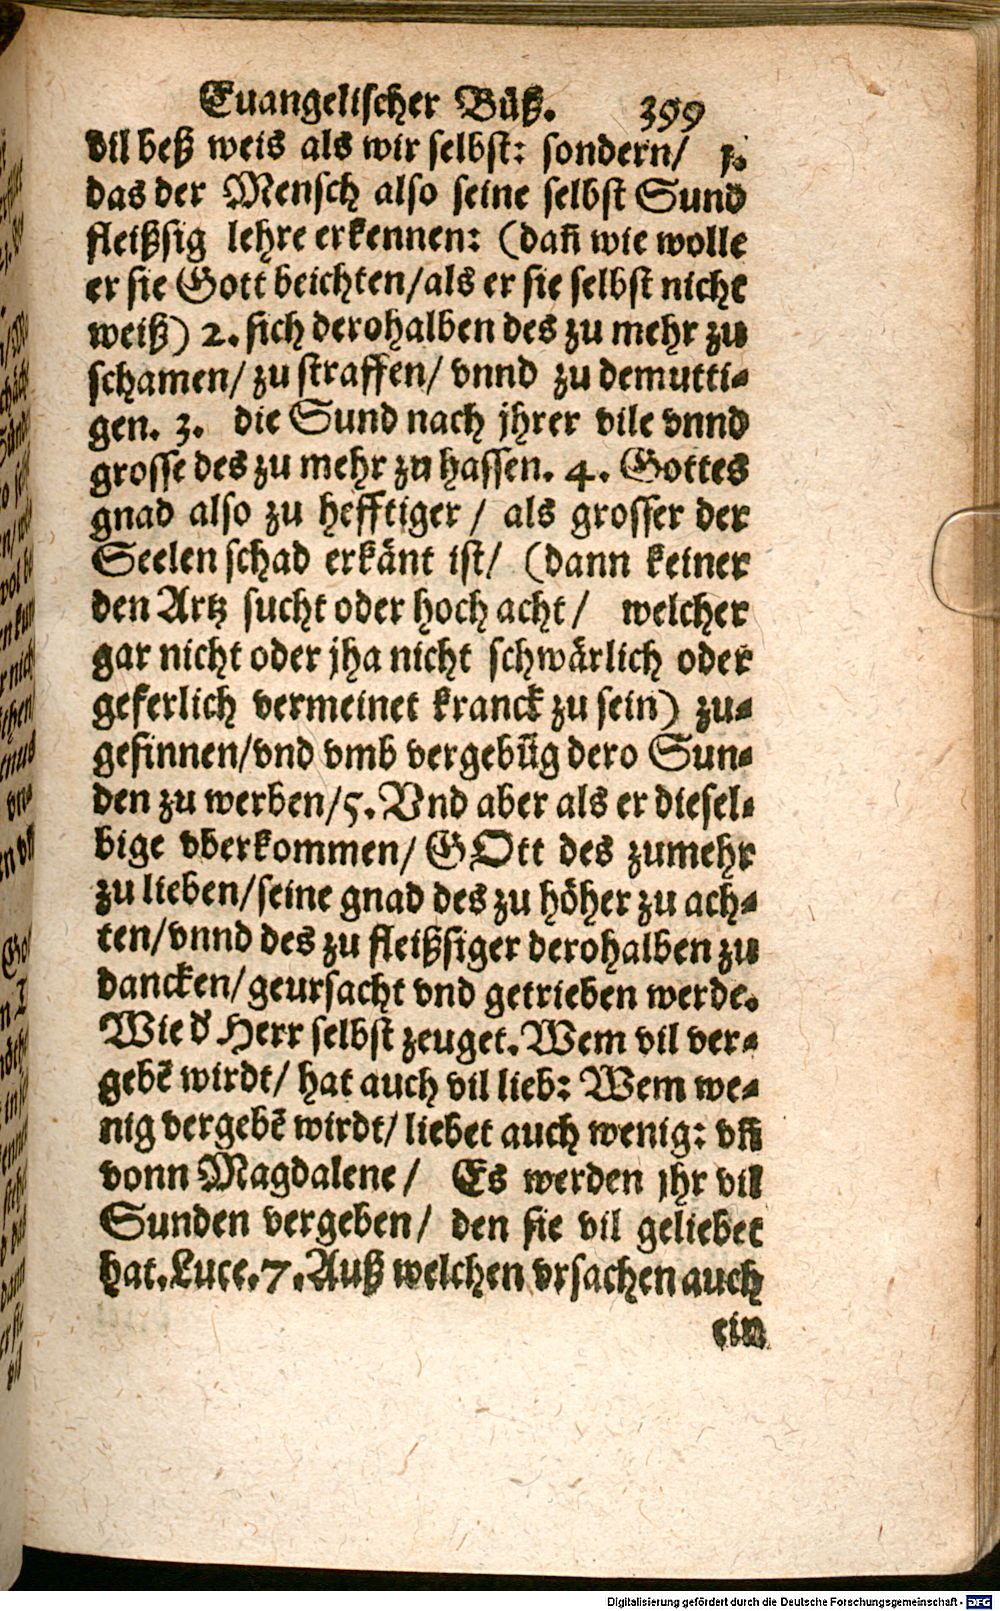 Euangelischer Büß. 399
vil beß weis als wir selbst: sondern/ 1.
das der Mensch also seine selbst Sund
fleißsig lehre erkennen: (dañ wie wolle
er sie Gott beichten/als er sie selbst nicht
weiß) 2. sich derohalben des zu mehr zu
schamen/ zu straffen/ vnnd zu demutti-
gen. 3. die Sund nach jhrer vile vnnd
grosse des zu mehr zu hassen. 4. Gottes
gnad also zu hefftiger / als grosser der
Seelen schad erkänt ist/ (dann keiner
den Artz sucht oder hoch acht / welcher
gar nicht oder jha nicht schwärlich oder
geferlich vermeinet kranck zu sein) zu-
gesinnen/vnd vmb vergebũg dero Sun-
den zu werben/5. Vnd aber als er diesel-
bige vberkommen/ GOtt des zumehr
zu lieben/seine gnad des zu höher zu ach-
ten/vnnd des zu fleißsiger derohalben zu
dancken/geursacht vnd getrieben werde.
Wie d' Herr selbst zeuget. Wem vil ver-
gebẽ wirdt/ hat auch vil lieb: Wem we-
nig vergebẽ wirdt/ liebet auch wenig: vñ
vonn Magdalene / Es werden jhr vil
Sunden vergeben/ den sie vil geliebet
hat.Luce.7.Auß welchen vrsachen auch
ein
Digitalisierung gefördert durch die Deutsche Forschungsgemeinschaft - DFG